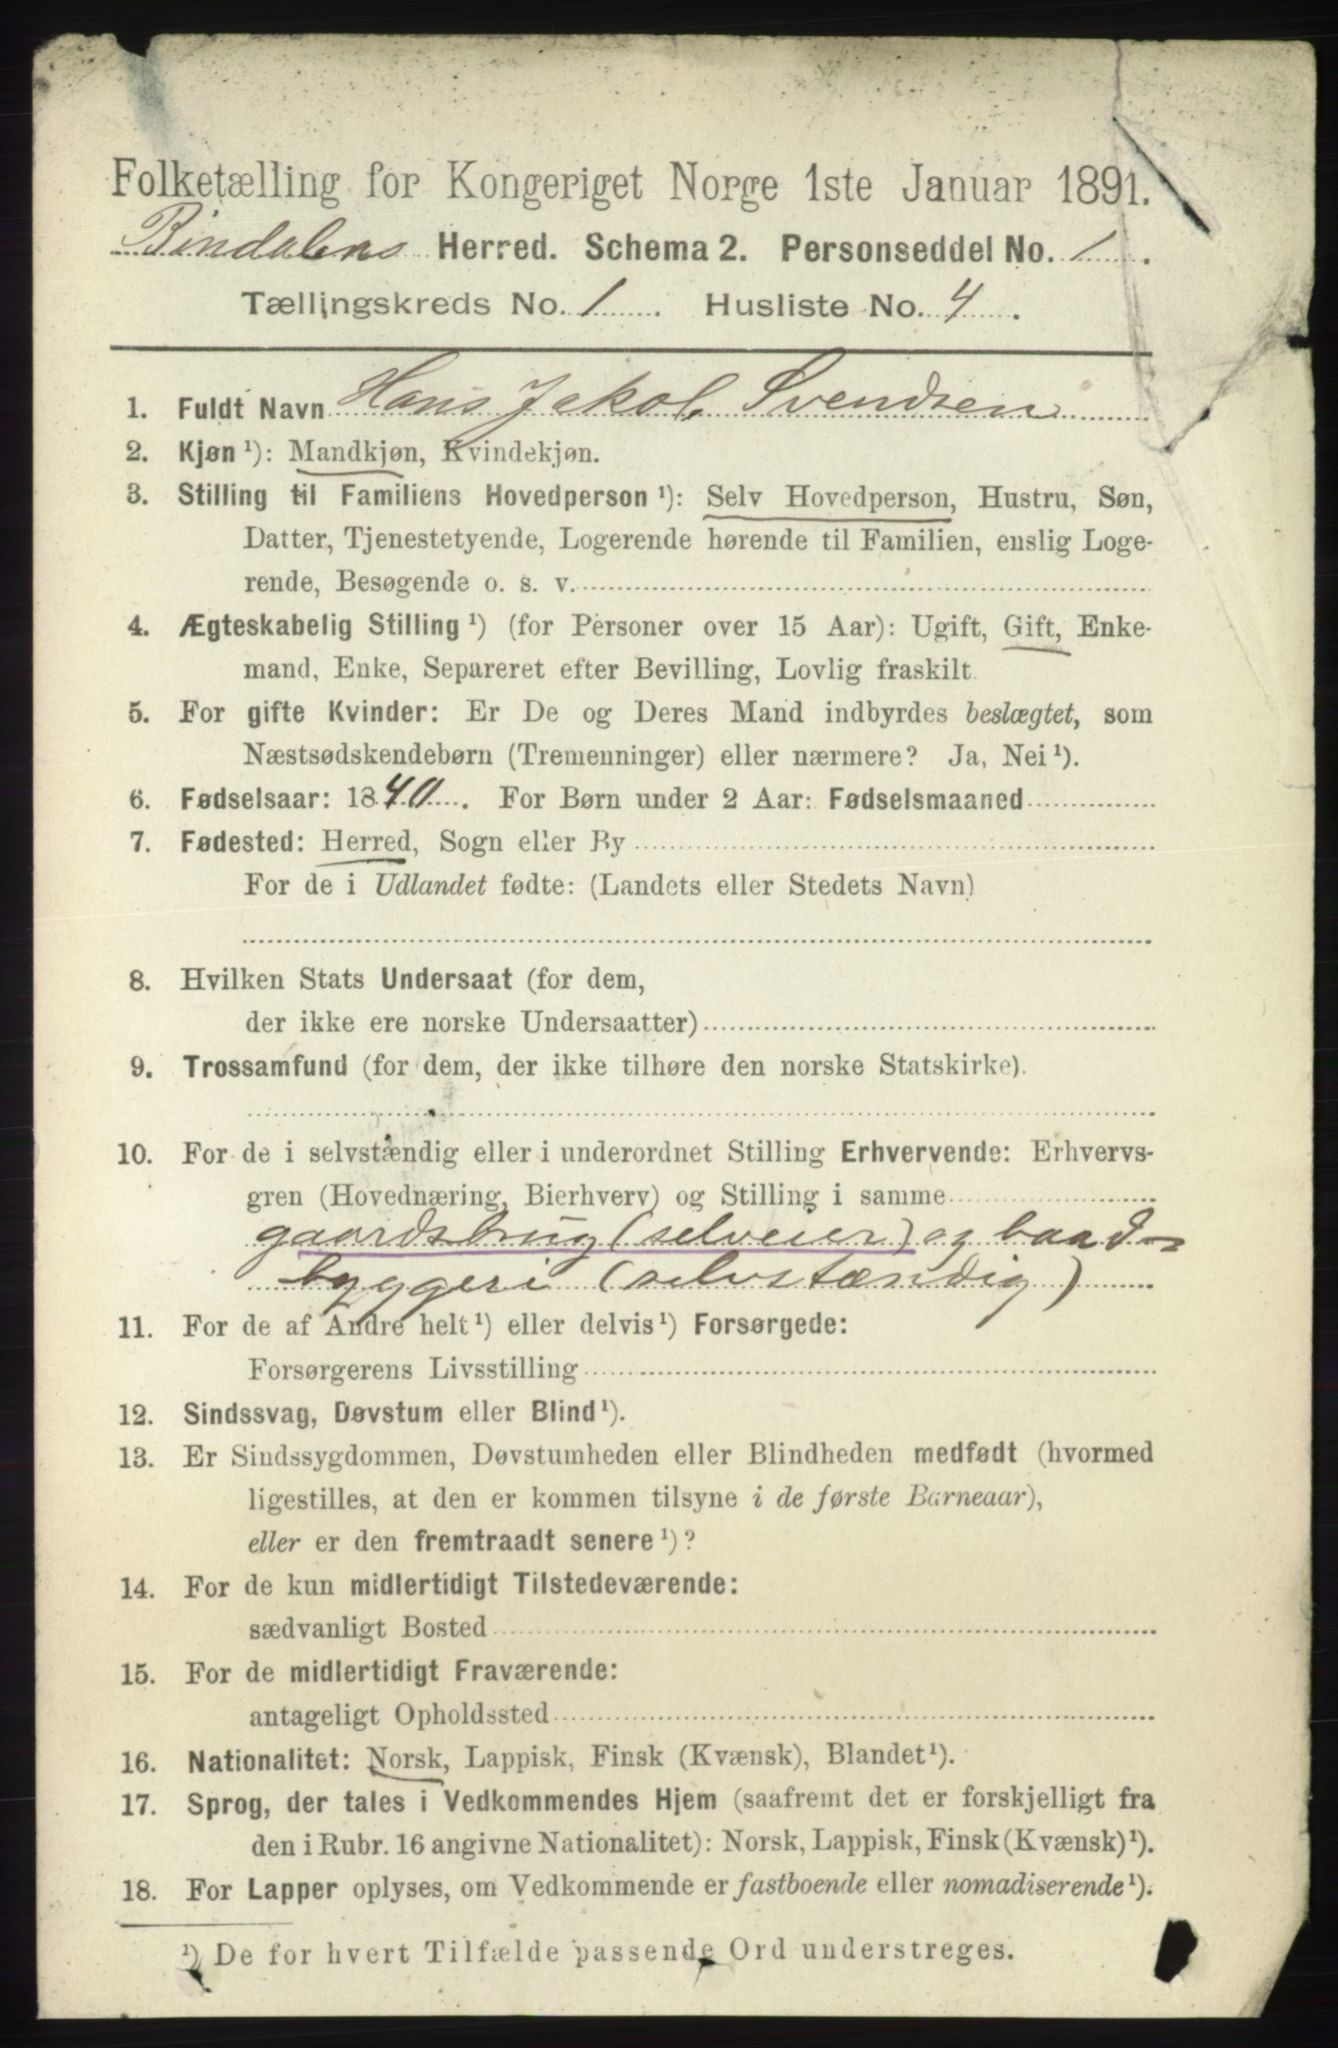 Folketælling for Kongeriget Norge 1ste Januar 1891.
Bindalens Herred. Schema 2. Personseddel No. 1.
Tællingskreds No. 1. Husliste No. 4.
1. Fuldt Navn Hans Jakob Svendsen
2. Kjøn ¹): Mandkjøn, Kvindekjøn.
3. Stilling til Familiens Hovedperson ¹): Selv Hovedperson, Hustru, Søn,
Datter, Tjenestetyende, Logerende hørende til Familien, enslig Loge-
rende, Besøgende o. s. v.
4. Ægteskabelig Stilling ¹) (for Personer over 15 Aar): Ugift, Gift, Enke-
mand, Enke, Separeret efter Bevilling, Lovlig fraskilt
5. For gifte Kvinder: Er De og Deres Mand indbyrdes beslægtet, som
Næstsødskendebørn (Tremenninger) eller nærmere? Ja, Nei ¹).
6. Fødselsaar: 1840. For Børn under 2 Aar: Fødselsmaaned
7. Fødested: Herred, Sogn eller By
For de i Udlandet fødte: (Landets eller Stedets Navn)
8. Hvilken Stats Undersaat (for dem,
der ikke ere norske Undersaatter)
9. Trossamfund (for dem, der ikke tilhøre den norske Statskirke).
10. For de i selvstændig eller i underordnet Stilling Erhvervende: Erhvervs-
gren (Hovednæring, Bierhverv) og Stilling i samme
gaardsbrug (selveier) og baad-
byggeri (selvstændig)
11. For de af Andre helt ¹) eller delvis ¹) Forsørgede:
Forsørgerens Livsstilling
12. Sindssvag, Døvstum eller Blind ¹).
13. Er Sindssygdommen, Døvstumheden eller Blindheden medfødt (hvormed
ligestilles, at den er kommen tilsyne i de første Barneaar),
eller er den fremtraadt senere ¹)?
14. For de kun midlertidigt Tilstedeværende:
sædvanligt Bosted
15. For de midlertidigt Fraværende:
antageligt Opholdssted
16. Nationalitet: Norsk, Lappisk, Finsk (Kvænsk), Blandet ¹).
17. Sprog, der tales i Vedkommendes Hjem (saafremt det er forskjelligt fra
den i Rubr. 16 angivne Nationalitet): Norsk, Lappisk, Finsk (Kvænsk) ¹).
18. For Lapper oplyses, om Vedkommende er fastboende eller nomadiserende ¹).
¹) De for hvert Tilfælde passende Ord understreges.